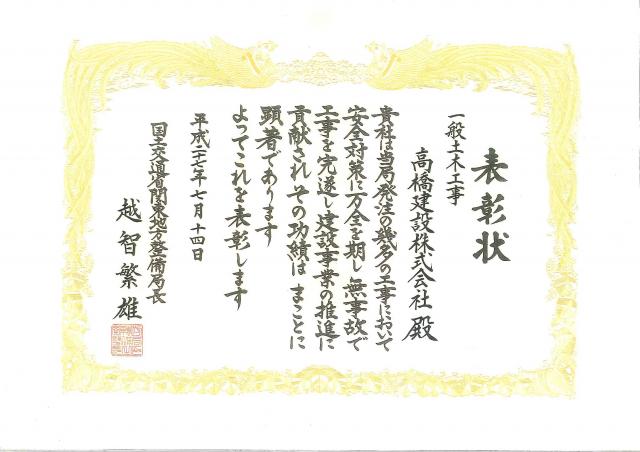 表彰状
一般土木工事
高橋建設株式会社 殿
貴社は当局発注の幾多の工事において
安全対策に万全を期し無事故で
工事を完遂し建設事業の推進に
貢献され その功績は まことに
顕著であります
よってこれを表彰します
平成二十七年七月十四日
国土交通省関東地方整備局長
越智繁雄